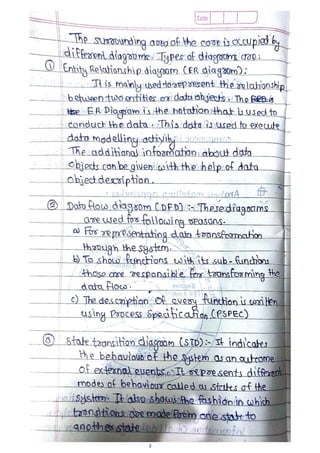 Date
The surrounding area of the core is occupied by
different diagrams. Types of diagrams are:
① Entity Relationship diagram (ER diagram):
It is mainly used to represent the relationship
between two entities or data objects. The
the ER Diagram is the notation that is used to
conduct the data. This data is used to execute
data modelling activity
The additional information about data
objects can be given with the help of data
object description.
② Data flow diagram (DFD) :- These diagrams
are used for following reasons.
a) For representating data transformation
through the system.
b) To show functions with its sub-functions
those are responsible for transforming the
data flow.
c) The description of every function is written
using Process Specification (PSPEC)
③ State transition diagram (STD) :- It indicates
the behaviour of the system as an outcome
of external events. It represents different
modes of behaviour called as states of the
system. It also shows the fashion in which
transitions are made from one state to
another state.